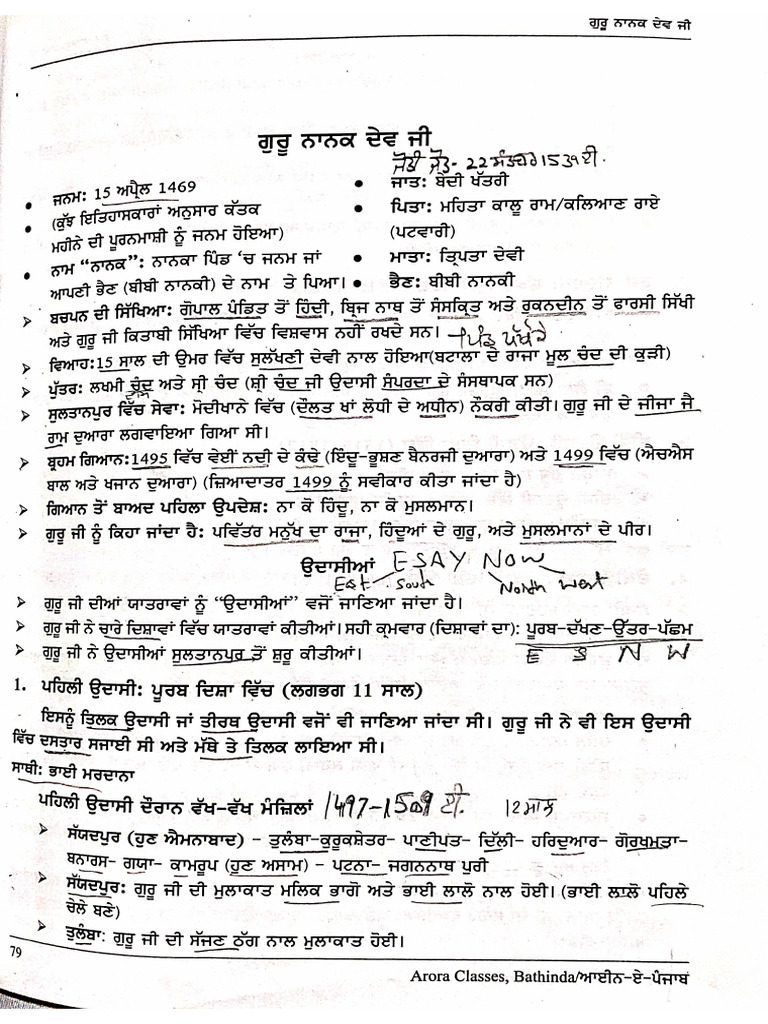 ਗੁਰੂ ਨਾਨਕ ਦੇਵ ਜੀ
ਗੁਰੂ ਨਾਨਕ ਦੇਵ ਜੀ
ਜੋਤੀ ਜੋਤ- 22 ਸਤੰਬਰ 1539 ਈ.
• ਜਨਮ: 15 ਅਪ੍ਰੈਲ 1469
• (ਕੁੱਝ ਇਤਿਹਾਸਕਾਰਾਂ ਅਨੁਸਾਰ ਕੱਤਕ
ਮਹੀਨੇ ਦੀ ਪੂਰਨਮਾਸ਼ੀ ਨੂੰ ਜਨਮ ਹੋਇਆ)
• ਨਾਮ “ਨਾਨਕ”: ਨਾਨਕਾ ਪਿੰਡ ‘ਚ ਜਨਮ ਜਾਂ
ਆਪਣੀ ਭੈਣ (ਬੀਬੀ ਨਾਨਕੀ) ਦੇ ਨਾਮ ਤੇ ਪਿਆ।
• ਜਾਤ: ਬੇਦੀ ਖੱਤਰੀ
• ਪਿਤਾ: ਮਹਿਤਾ ਕਾਲੂ ਰਾਮ/ਕਲਿਆਣ ਰਾਏ
(ਪਟਵਾਰੀ)
• ਮਾਤਾ: ਤ੍ਰਿਪਤਾ ਦੇਵੀ
• ਭੈਣ: ਬੀਬੀ ਨਾਨਕੀ
➢ ਬਚਪਨ ਦੀ ਸਿੱਖਿਆ: ਗੋਪਾਲ ਪੰਡਿਤ ਤੋਂ ਹਿੰਦੀ, ਬ੍ਰਿਜ ਨਾਥ ਤੋਂ ਸੰਸਕ੍ਰਿਤ ਅਤੇ ਰੁਕਨਦੀਨ ਤੋਂ ਫਾਰਸੀ ਸਿੱਖੀ
ਅਤੇ ਗੁਰੂ ਜੀ ਕਿਤਾਬੀ ਸਿੱਖਿਆ ਵਿੱਚ ਵਿਸ਼ਵਾਸ ਨਹੀਂ ਰਖਦੇ ਸਨ। ਪਿੰਡ ਪੱਖੋਕੇ
➢ ਵਿਆਹ:15 ਸਾਲ ਦੀ ਉਮਰ ਵਿੱਚ ਸੁਲੱਖਣੀ ਦੇਵੀ ਨਾਲ ਹੋਇਆ(ਬਟਾਲਾ ਦੇ ਰਾਜਾ ਮੂਲ ਚੰਦ ਦੀ ਕੁੜੀ)
➢ ਪੁੱਤਰ: ਲਖਮੀ ਚੰਦ ਅਤੇ ਸ੍ਰੀ ਚੰਦ (ਸ਼੍ਰੀ ਚੰਦ ਜੀ ਉਦਾਸੀ ਸੰਪਰਦਾ ਦੇ ਸੰਸਥਾਪਕ ਸਨ)
➢ ਸੁਲਤਾਨਪੁਰ ਵਿੱਚ ਸੇਵਾ: ਮੋਦੀਖਾਨੇ ਵਿੱਚ (ਦੌਲਤ ਖਾਂ ਲੋਧੀ ਦੇ ਅਧੀਨ) ਨੌਕਰੀ ਕੀਤੀ। ਗੁਰੂ ਜੀ ਦੇ ਜੀਜਾ ਜੈ
ਰਾਮ ਦੁਆਰਾ ਲਗਵਾਇਆ ਗਿਆ ਸੀ।
➢ ਬ੍ਰਹਮ ਗਿਆਨ:1495 ਵਿੱਚ ਵੇਈਂ ਨਦੀ ਦੇ ਕੰਢੇ (ਇੰਦੂ-ਭੂਸ਼ਣ ਬੈਨਰਜੀ ਦੁਆਰਾ) ਅਤੇ 1499 ਵਿੱਚ (ਐਚਐਸ
ਬਾਲ ਅਤੇ ਖਜਾਨ ਦੁਆਰਾ) (ਜ਼ਿਆਦਾਤਰ 1499 ਨੂੰ ਸਵੀਕਾਰ ਕੀਤਾ ਜਾਂਦਾ ਹੈ)
➢ ਗਿਆਨ ਤੋਂ ਬਾਅਦ ਪਹਿਲਾ ਉਪਦੇਸ਼: ਨਾ ਕੋ ਹਿੰਦੂ, ਨਾ ਕੋ ਮੁਸਲਮਾਨ।
➢ ਗੁਰੂ ਜੀ ਨੂੰ ਕਿਹਾ ਜਾਂਦਾ ਹੈ: ਪਵਿੱਤਰ ਮਨੁੱਖ ਦਾ ਰਾਜਾ, ਹਿੰਦੂਆਂ ਦੇ ਗੁਰੂ, ਅਤੇ ਮੁਸਲਮਾਨਾਂ ਦੇ ਪੀਰ।
ਉਦਾਸੀਆਂ ESAY NOW
Est South North West
➢ ਗੁਰੂ ਜੀ ਦੀਆਂ ਯਾਤਰਾਵਾਂ ਨੂੰ “ਉਦਾਸੀਆਂ” ਵਜੋਂ ਜਾਣਿਆ ਜਾਂਦਾ ਹੈ।
➢ ਗੁਰੂ ਜੀ ਨੇ ਚਾਰੇ ਦਿਸ਼ਾਵਾਂ ਵਿੱਚ ਯਾਤਰਾਵਾਂ ਕੀਤੀਆਂ। ਸਹੀ ਕ੍ਰਮਵਾਰ (ਦਿਸ਼ਾਵਾਂ ਦਾ): ਪੂਰਬ-ਦੱਖਣ-ਉੱਤਰ-ਪੱਛਮ
➢ ਗੁਰੂ ਜੀ ਨੇ ਉਦਾਸੀਆਂ ਸੁਲਤਾਨਪੁਰ ਤੋਂ ਸ਼ੁਰੂ ਕੀਤੀਆਂ। E S N W
1. ਪਹਿਲੀ ਉਦਾਸੀ: ਪੂਰਬ ਦਿਸ਼ਾ ਵਿੱਚ (ਲਗਭਗ 11 ਸਾਲ)
ਇਸਨੂੰ ਤਿਲਕ ਉਦਾਸੀ ਜਾਂ ਤੀਰਥ ਉਦਾਸੀ ਵਜੋਂ ਵੀ ਜਾਣਿਆ ਜਾਂਦਾ ਸੀ। ਗੁਰੂ ਜੀ ਨੇ ਵੀ ਇਸ ਉਦਾਸੀ
ਵਿੱਚ ਦਸਤਾਰ ਸਜਾਈ ਸੀ ਅਤੇ ਮੱਥੇ ਤੇ ਤਿਲਕ ਲਾਇਆ ਸੀ।
ਸਾਥੀ: ਭਾਈ ਮਰਦਾਨਾ
ਪਹਿਲੀ ਉਦਾਸੀ ਦੌਰਾਨ ਵੱਖ-ਵੱਖ ਮੰਜ਼ਿਲਾਂ 1497-1509 ਈ. 12 ਸਾਲ
➢ ਸੱਯਦਪੁਰ (ਹੁਣ ਐਮਨਾਬਾਦ) - ਤੁਲੰਬਾ-ਕੁਰੂਕਸ਼ੇਤਰ- ਪਾਣੀਪਤ- ਦਿੱਲੀ- ਹਰਿਦੁਆਰ- ਗੋਰਖਮਤਾ-
ਬਨਾਰਸ- ਗਯਾ- ਕਾਮਰੂਪ (ਹੁਣ ਅਸਾਮ) - ਪਟਨਾ- ਜਗਨਨਾਥ ਪੁਰੀ
➢ ਸੱਯਦਪੁਰ: ਗੁਰੂ ਜੀ ਦੀ ਮੁਲਾਕਾਤ ਮਲਿਕ ਭਾਗੋ ਅਤੇ ਭਾਈ ਲਾਲੋ ਨਾਲ ਹੋਈ। (ਭਾਈ ਲਾਲੋ ਪਹਿਲੇ
ਚੇਲੇ ਬਣੇ)
➢ ਤੁਲੰਬਾ: ਗੁਰੂ ਜੀ ਦੀ ਸੱਜਣ ਠੱਗ ਨਾਲ ਮੁਲਾਕਾਤ ਹੋਈ।
79
Arora Classes, Bathinda/ਆਈਨ-ਏ-ਪੰਜਾਬ